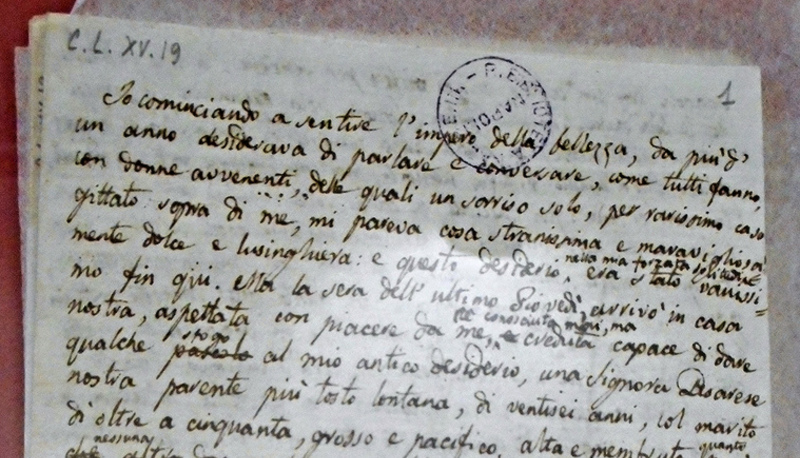 C. L. XV. 19
1
Io cominciando a sentire l'impero della bellezza, da più d'
un anno desiderava di parlare e conversare, come tutti fanno,
con donne avvenenti, delle quali un sorriso solo, per rarissimo caso
gittato sopra di me, mi pareva cosa stranissima e maravigliosa
mente dolce e lusinghiera: e questo desiderio, nella mia forzata solitudine era stato vanissi-
mo fin qui. Ma la sera dell'ultimo Giovedì, arrivò in casa
nostra, aspettata con piacere da me, nè conosciuta mai, ma creduta capace di dare
qualche sfogo al mio antico desiderio, una Signora Pisarese
nostra parente più tosto lontana, di ventisei anni, col marito
di oltre a cinquanta, grosso e pacifico, alta e membruta quanto
nessuna